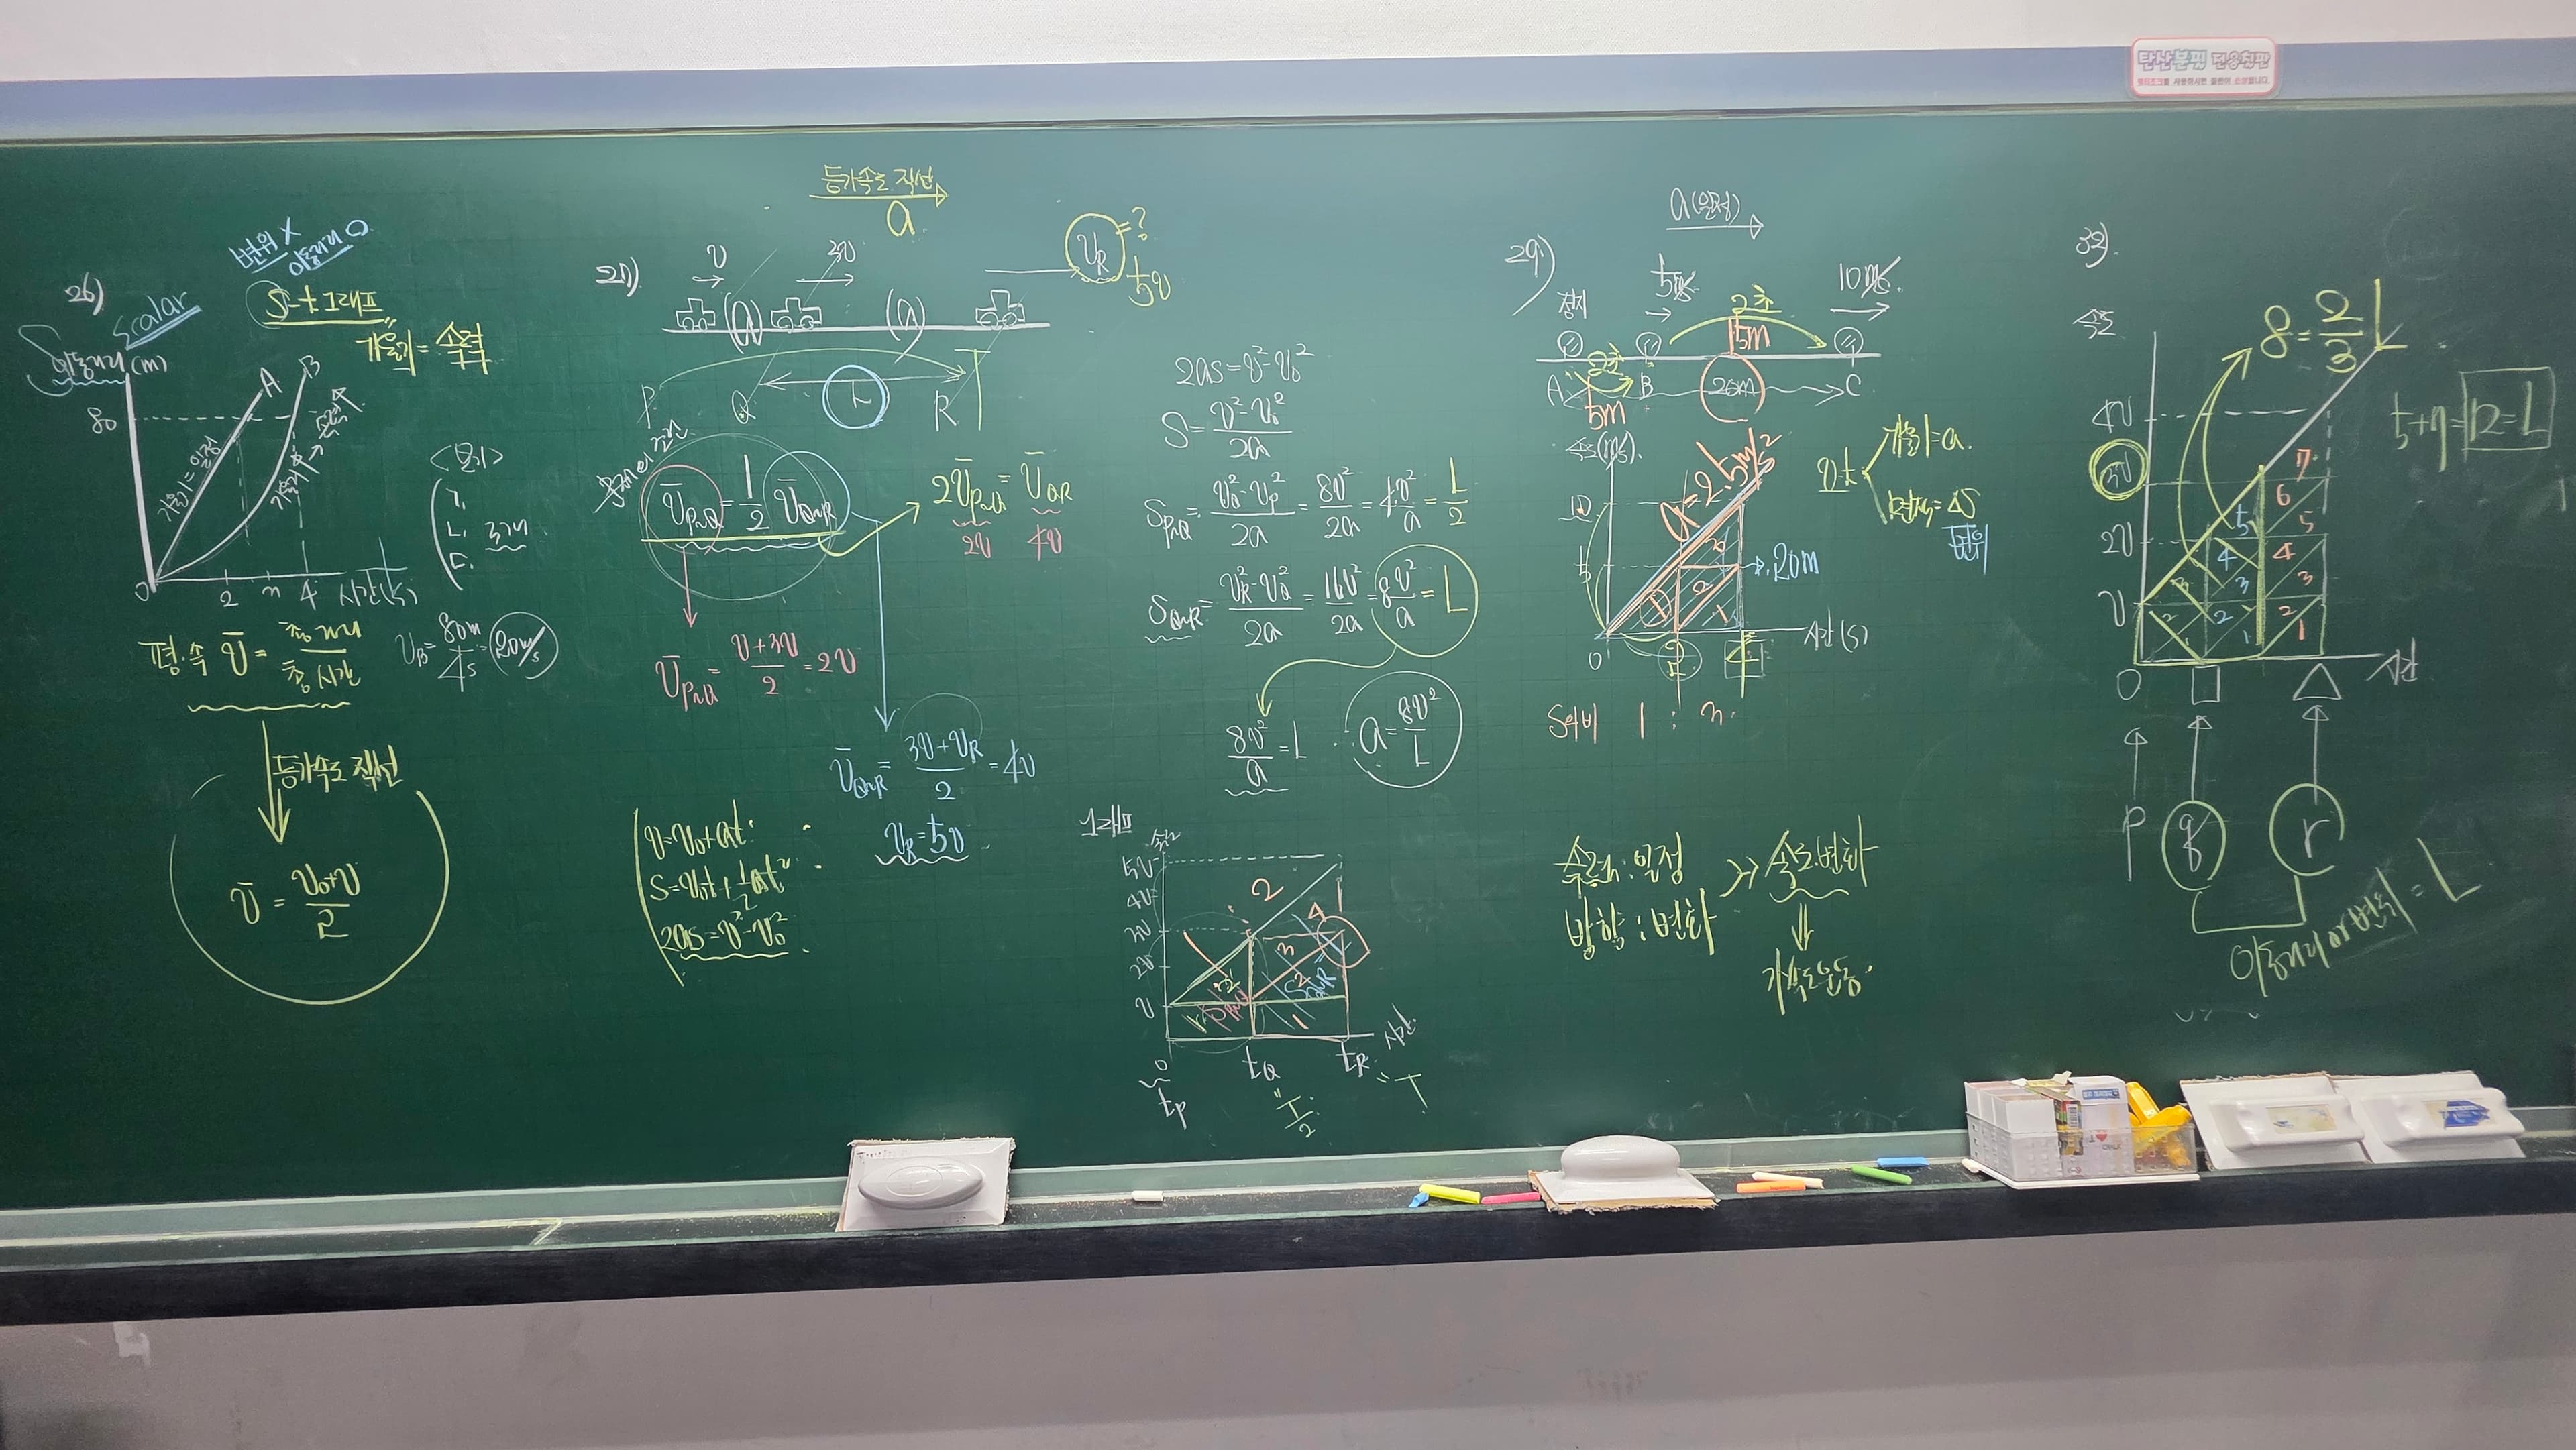 탄산분필 전용칠판
26)
변위 X
이동거리 O
Scalar
S-t 그래프
기울기 = 속력
이동거리(m)
A
B
80
기울기 = 일정
기울기↑ → 속력↑
0
2
n
4
시간(s)
<보기>
ㄱ.
ㄴ. 3개
ㄷ.
평·속 v̄ = 총거리/총시간
v_B = 80m/4s = 20m/s
등가속도 직선
v̄ = (v₀+v)/2
27)
등가속도 직선
a
v
3v
v_R = ?
5v
P
Q
L
R
v̄_P~Q = 1/2 v̄_Q~R
2v̄_P~Q = v̄_Q~R
2v 4v
v̄_P~Q = (v+3v)/2 = 2v
v̄_Q~R = (3v+v_R)/2 = 4v
v_R = 5v
v = v₀+at
S = v₀t+1/2at²
2as = v²-v₀²
2as = v²-v₀²
S = (v²-v₀²)/2a
S_P~Q = (v_Q²-v_P²)/2a = 8v²/2a = 4v²/a = L/2
S_Q~R = (v_R²-v_Q²)/2a = 16v²/2a = 8v²/a = L
8v²/a = L
a = 8v²/L
그래프
속도
5v
4v
3v
2v
v
2
4
3
2
1
S_P~Q
S_Q~R
시간
0
t_P
t_Q
t_R
" T/2
" T
29)
a(일정)
정지
5m/s
10m/s
2초
15m
A
2초
B
20m
C
5m
속도(m/s)
10
5
a=2.5m/s²
1
3
2
1
20m
0
2
4
시간(s)
S의 비 1 : 3
v-t
기울기 = a
면적 = ΔS
변위
속력 : 일정
방향 : 변화
→ 속도변화
⇓
가속도운동
32)
속도
8 = 2/3 L
5+7 = 12 = L
4v
3v
2v
v
7
6
5 5
4 4
3 3 3
2 2 2
1 1 1
0
□
△
시간
p
q
r
이동거리 or 변위 = L